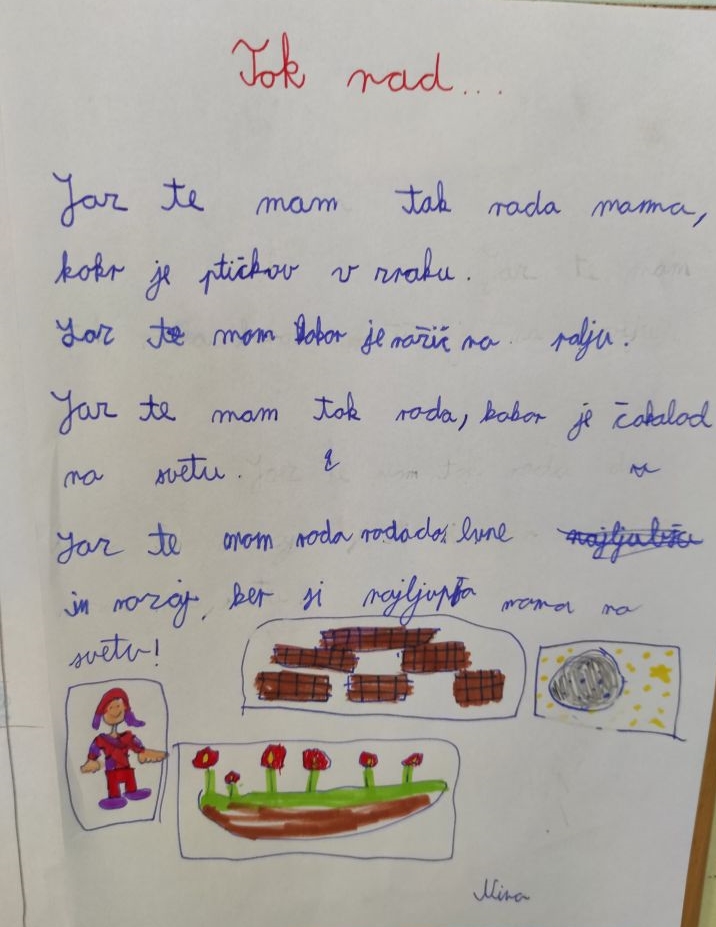 Tok rad...
Jaz te mam tak rada mama,
kokr je ptičkov v zraku.
Jaz te mam kobor je rožic na polju.
Jaz te mam tok rada, kobor je čokolad
na svetu.
Jaz te mam rada rada do lune najljubša
in nazaj, ker si najljupša mama na
svetu!
Nina